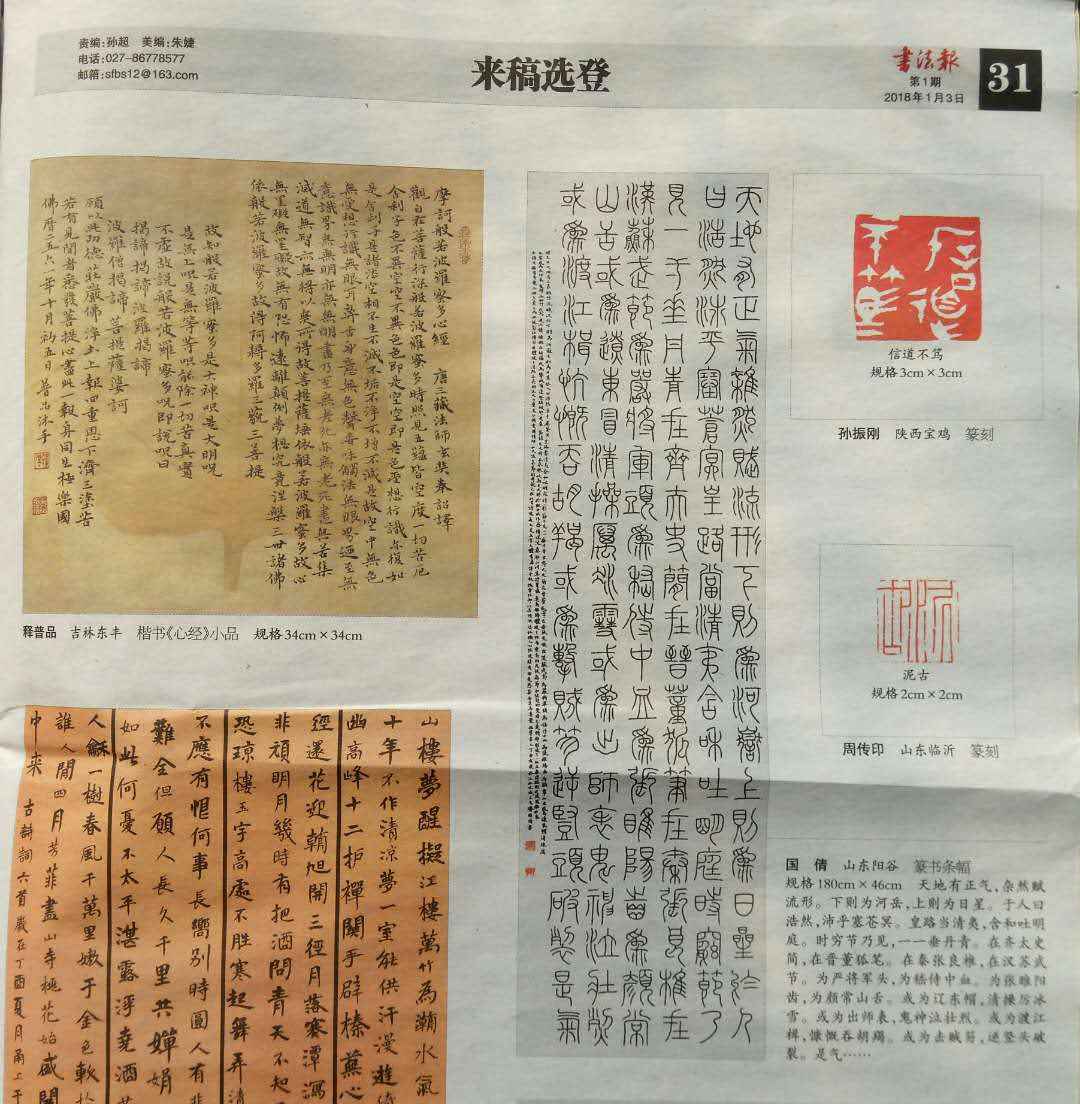 责编:孙超 美编:朱婕
电话:027-86778577
邮箱:sfbs12@163.com
来稿选登
书法报
第1期
2018年1月3日
31
摩訶般若波羅蜜多心經 唐三藏法師玄奘奉詔譯
觀自在菩薩行深般若波羅蜜多時照見五蘊皆空度一切苦厄
舍利子色不異空空不異色色即是空空即是色受想行識亦復如
是舍利子是諸法空相不生不滅不垢不淨不增不減是故空中無色
無受想行識無眼耳鼻舌身意無色聲香味觸法無眼界乃至無
意識界無無明亦無無明盡乃至無老死亦無老死盡無苦集
滅道無智亦無得以無所得故菩提薩埵依般若波羅蜜多故心
無罣礙無罣礙故無有恐怖遠離顛倒夢想究竟涅槃三世諸佛
依般若波羅蜜多故得阿耨多羅三藐三菩提
故知般若波羅蜜多是大神呪是大明呪
是無上呪是無等等呪能除一切苦真實
不虛故說般若波羅蜜多呪即說呪曰
揭諦揭諦 波羅揭諦
波羅僧揭諦 菩提薩婆訶
願以此功德莊嚴佛淨土上報四重恩下濟三塗苦
若有見聞者悉發菩提心盡此一報身同生極樂國
释普品 吉林东丰 楷书《心经》小品 规格34cm×34cm
山樓夢醒擬江樓萬竹為瀟水氣
十年不作清涼夢一室能供汗漫遊
幽高峰十二护禪關手辟榛蕪心
經還花迎朝旭開三徑月落寒潭瀉
非頑明月幾時有把酒問青天不知
恐瓊樓玉宇高處不勝寒起舞弄清
不應有恨何事長嚮別時圓人有悲
難全但願人長久千里共嬋娟
如此何憂不太平湛露浮堯酒
人龢一樹春風千萬里嫩于金色軟於
誰人閒四月芳菲盡山寺桃花始盛開
中来 古詩詞六首歲在丁酉夏月
天地有正氣雜然賦流形下則為河嶽上則為日星於人
曰浩然沛乎塞蒼冥皇路當清夷含和吐明庭時窮節乃
見一一垂丹青在齊太史簡在晉董狐筆在秦張良椎在
漢蘇武節為嚴將軍頭為嵇侍中血為張睢陽齒為顏常
山舌或為遼東帽清操厲冰雪或為出師表鬼神泣壯烈
或為渡江楫慷慨吞胡羯或為擊賊笏逆豎頭破裂是氣
信道不笃
规格3cm×3cm
孙振刚 陕西宝鸡 篆刻
泥古
规格2cm×2cm
周传印 山东临沂 篆刻
国倩 山东阳谷 篆书条幅
规格180cm×46cm 天地有正气,杂然赋
流形。下则为河岳,上则为日星。于人曰
浩然,沛乎塞苍冥。皇路当清夷,含和吐明
庭。时穷节乃见,一一垂丹青。在齐太史
简,在晋董狐笔。在秦张良椎,在汉苏武
节。为严将军头,为嵇侍中血。为张睢阳
齿,为颜常山舌。或为辽东帽,清操厉冰
雪。或为出师表,鬼神泣壮烈。或为渡江
楫,慷慨吞胡羯。或为击贼笏,逆竖头破
裂。是气……